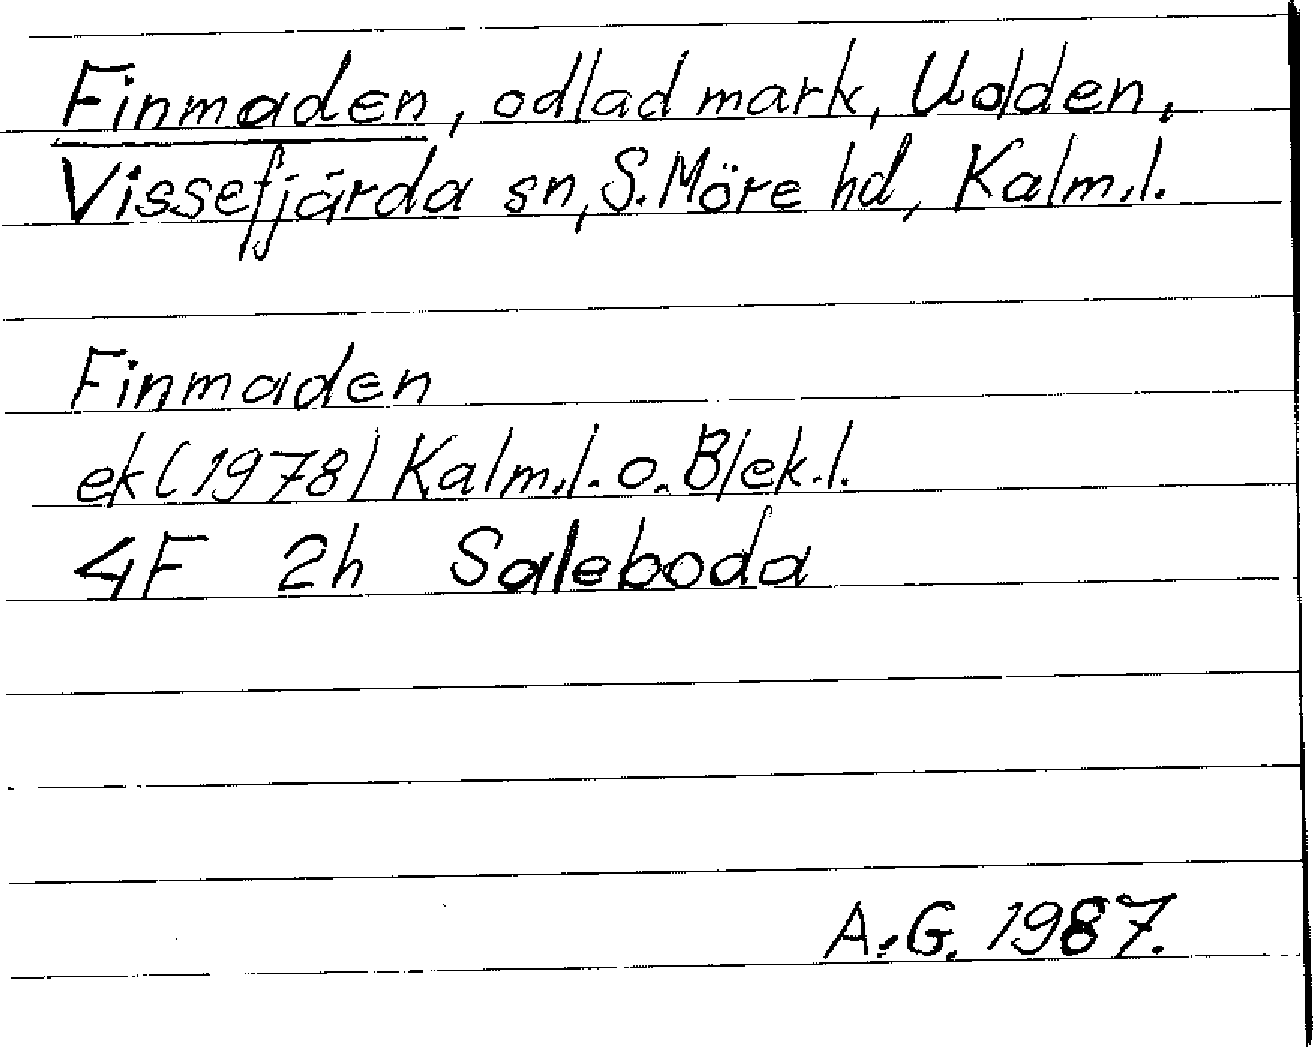 Finmaden, odlad mark, Uolden,
Vissefjärda sn, S. Möre hd, Kalm.l.
Finmaden
ek (1978) Kalm.l. o. Blek.l.
4F 2h Saleboda
A.G. 1987.